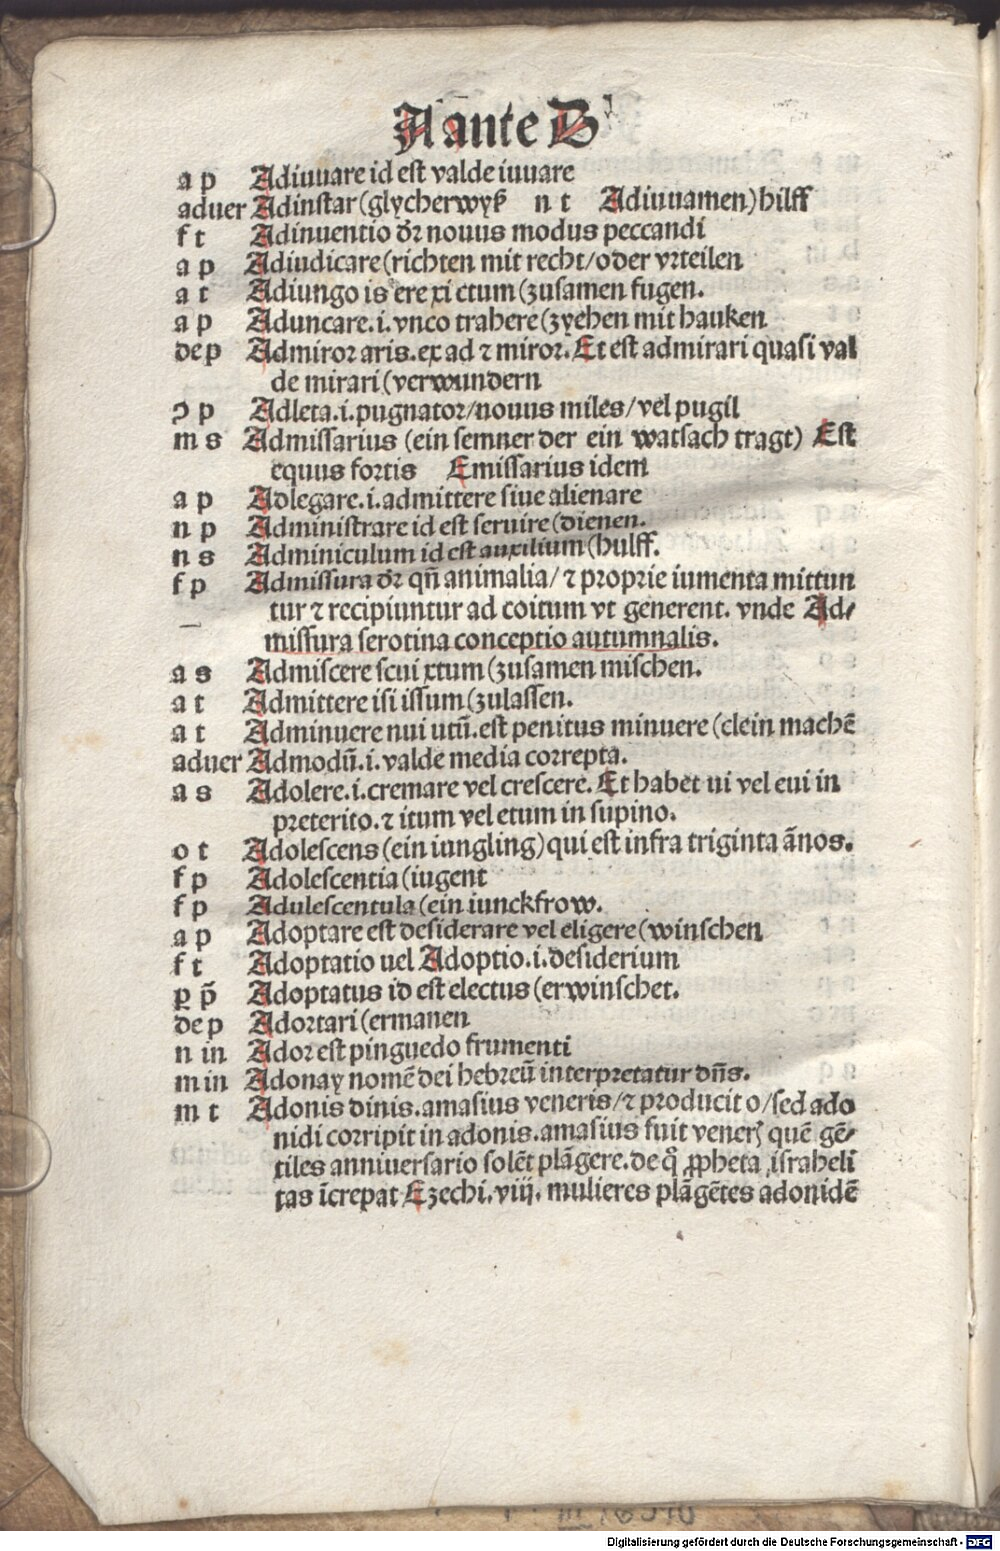 A ante B
a p Adiuuare id est valde iuuare
aduer Adinstar (glycherwyß n t Adiuuamen) hilff
f t Adinuentio dr̄ nouus modus peccandi
a p Adiudicare (richten mit recht/oder vrteilen
a t Adiungo is ere xi ctum (zusamen fugen.
a p Aduncare .i. vnco trahere (zyehen mit hauken
dep Admiror aris. ex ad ⁊ miror. Et est admirari quasi val
de mirari (verwundern
ↄ p Adleta .i. pugnator/nouus miles/vel pugil
m s Admissarius (ein semner der ein watsach tragt) Est
equus fortis Emissarius idem
a p Adlegare .i. admittere siue alienare
n p Administrare id est seruire (dienen.
n s Adminiculum id est auxilium (hulff.
f p Admissura dr̄ qñ animalia/ ⁊ proprie iumenta mittun
tur ⁊ recipiuntur ad coitum vt generent. vnde Ad/
missura serotina conceptio autumnalis.
a s Admiscere scui xtum (zusamen mischen.
a t Admittere isi issum (zulassen.
a t Adminuere nui utū. est penitus minuere (clein machē
aduer Admodū .i. valde media correpta.
a s Adolere .i. cremare vel crescere. Et habet ui vel eui in
preterito. ⁊ itum vel etum in supino.
o t Adolescens (ein iungling) qui est infra triginta ãnos.
f p Adolescentia (iugent
f p Adulescentula (ein iunckfrow.
a p Adoptare est desiderare vel eligere (winschen
f t Adoptatio uel Adoptio .i. desiderium
ꝑ p̄ Adoptatus id est electus (erwinschet.
dep Adortari (ermanen
n in Ador est pinguedo frumenti
m in Adonay nomē dei hebreū interpretatur dñs.
m t Adonis dinis. amasius veneris/ ⁊ producit o/sed ado
nidi corripit in adonis. amasius fuit venerꝭ quē gē/
tiles anniuersario solēt plāgere. de q̊ ꝓpheta israheli
tas īcrepat Ezechi. viij. mulieres plāgētes adonidē
Digitalisierung gefördert durch die Deutsche Forschungsgemeinschaft - DFG